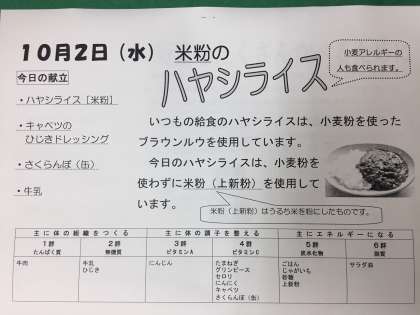 10月2日（水） 米粉の
ハヤシライス
小麦アレルギーの
人も食べられます。
今日の献立
・ハヤシライス［米粉］
・キャベツの
ひじきドレッシング
・さくらんぼ（缶）
・牛乳
いつもの給食のハヤシライスは、小麦粉を使った
ブラウンルウを使用しています。
今日のハヤシライスは、小麦粉を
使わずに米粉（上新粉）を使用して
います。
米粉（上新粉）はうるち米を粉にしたものです。
主に体の組織をつくる 主に体の調子を整える 主にエネルギーになる
1群 2群 3群 4群 5群 6群
たんぱく質 無機質 ビタミンA ビタミンC 炭水化物 脂質
牛肉 牛乳 にんじん たまねぎ ごはん サラダ油
ひじき グリンピース じゃがいも
セロリ 砂糖
にんにく 上新粉
キャベツ
さくらんぼ（缶）